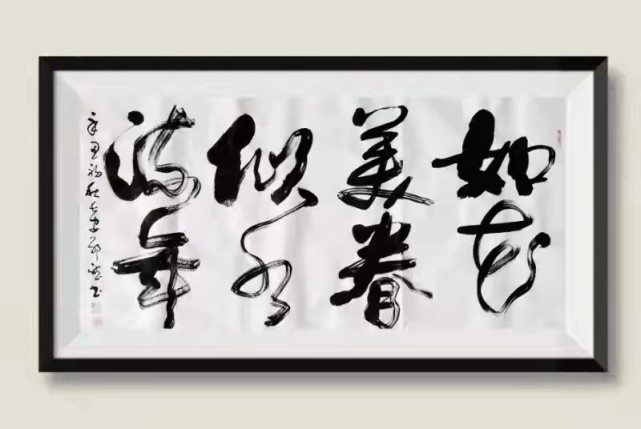 如花
美眷
似水
流年
辛丑初秋 书